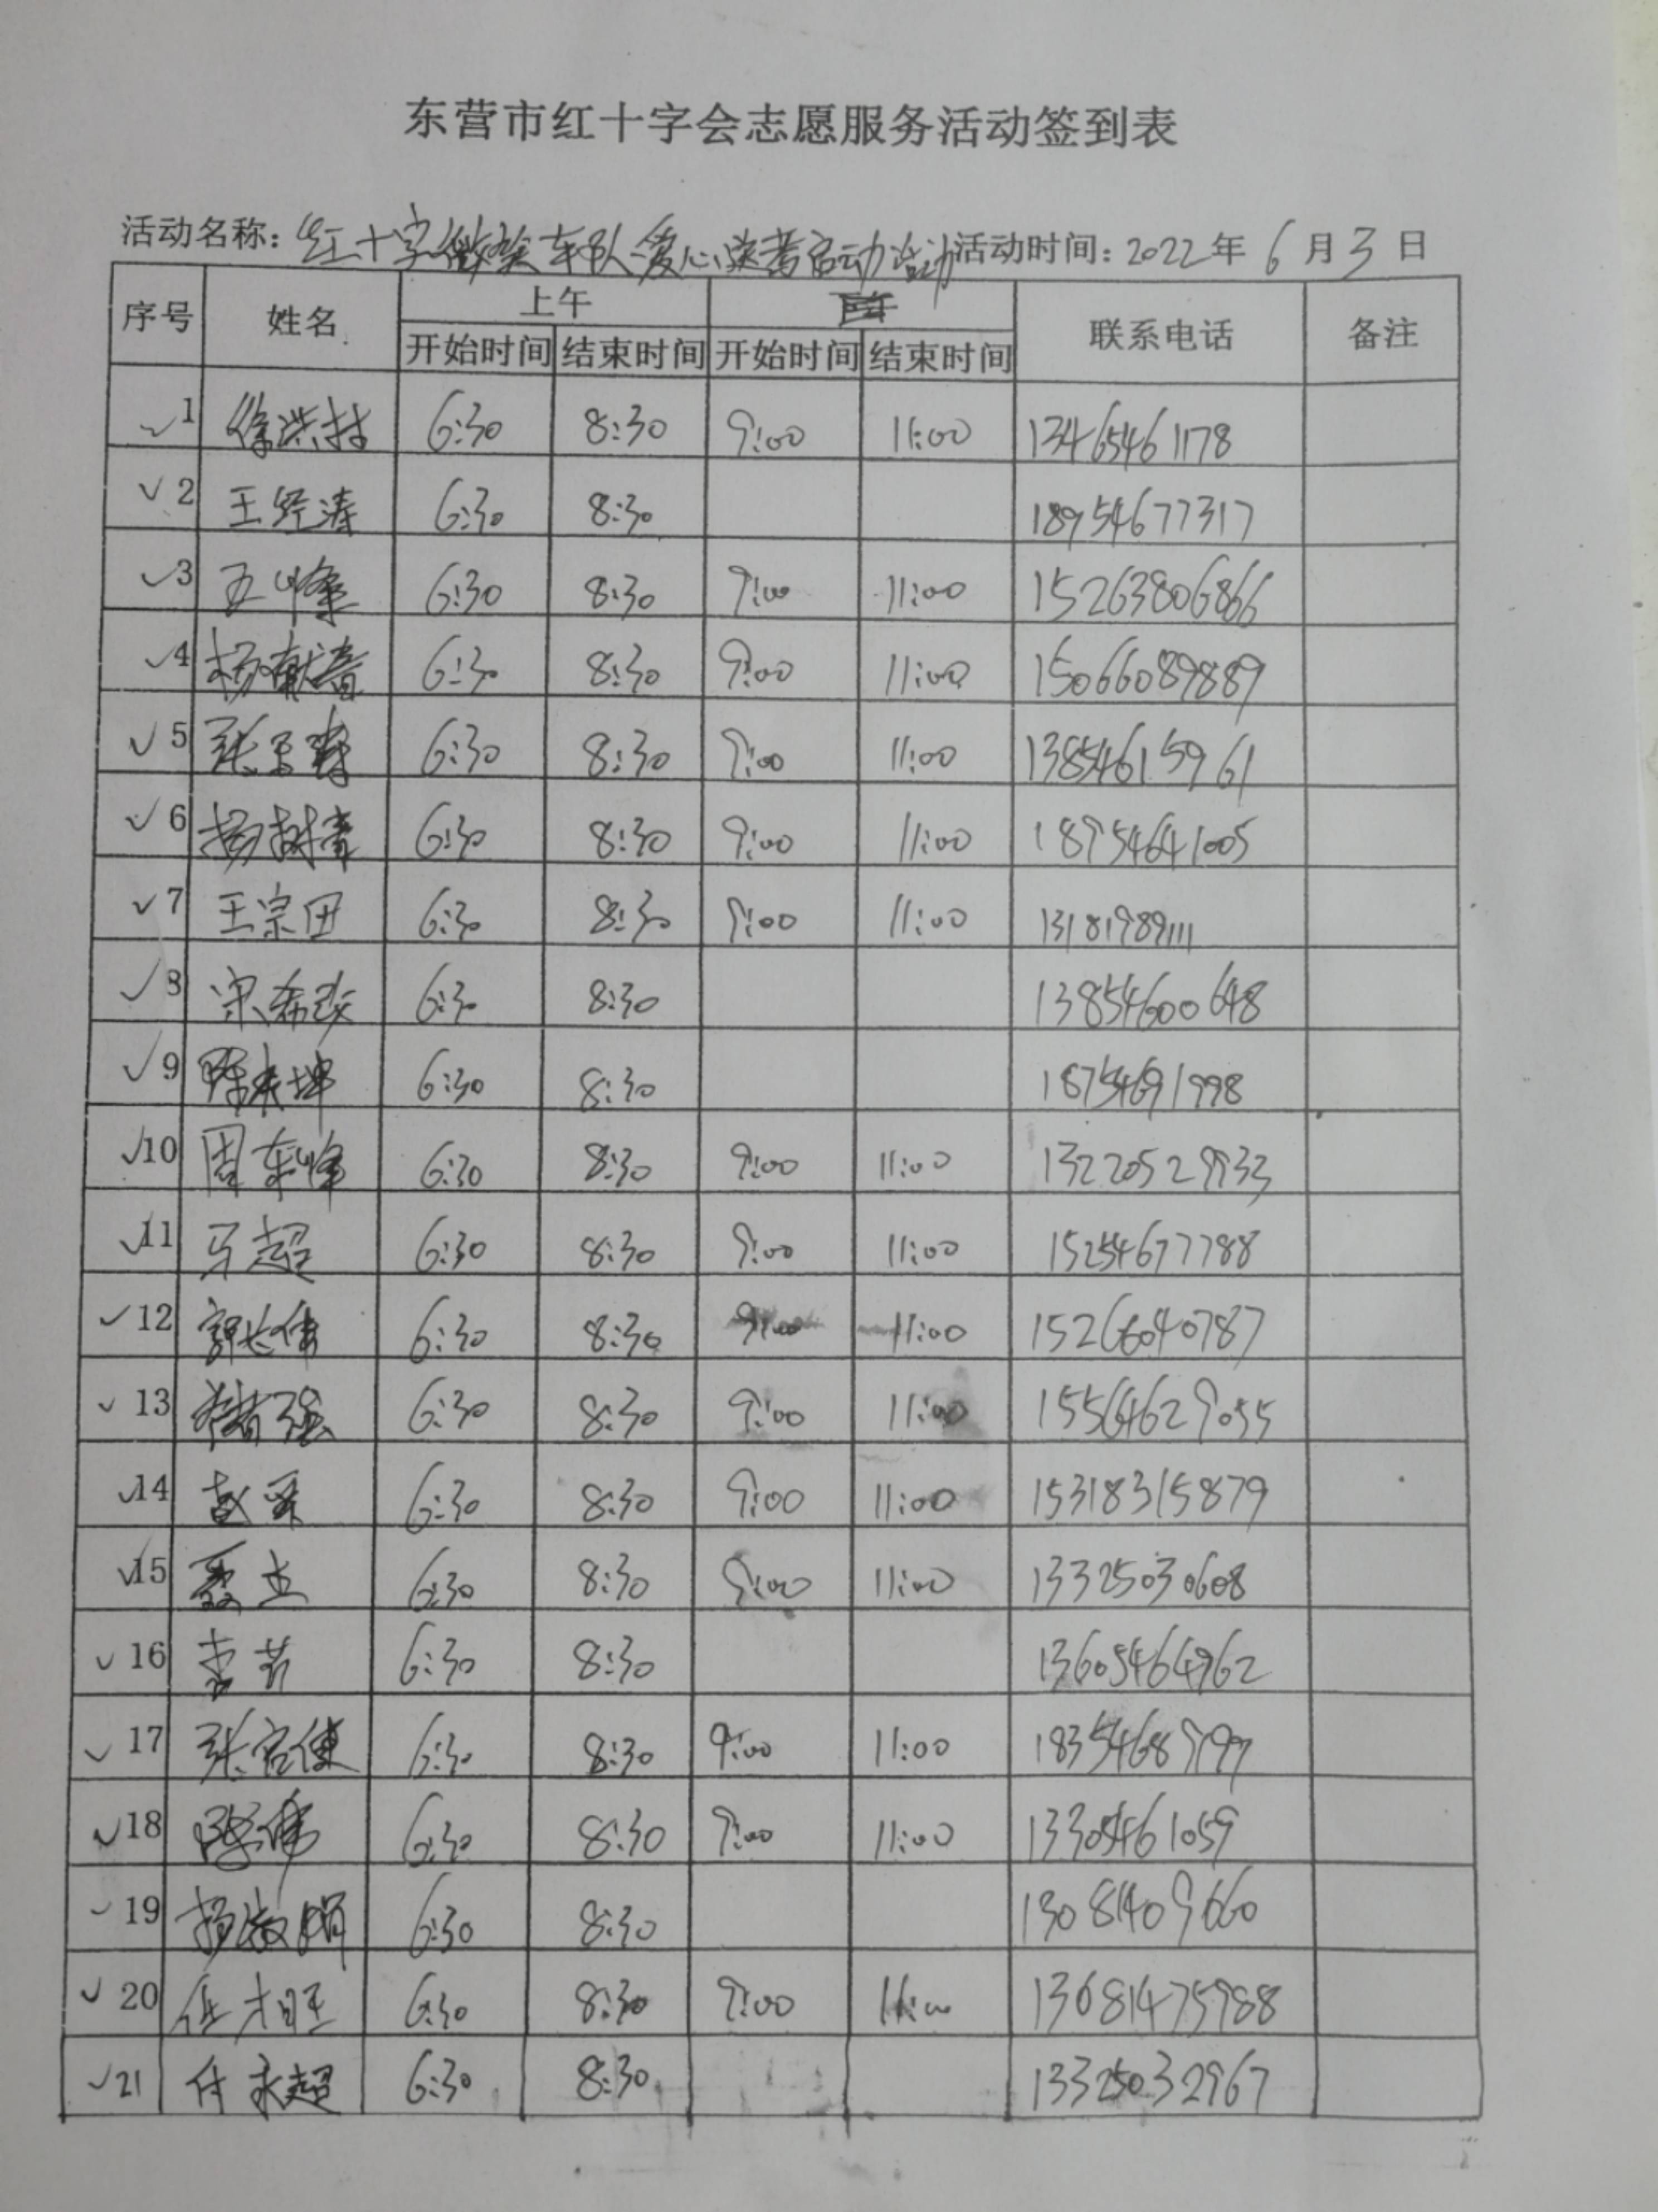 东营市红十字会志愿服务活动签到表
活动名称: 红十字微笑车队爱心送考启动活动 活动时间: 2022年6月3日
序号 姓名 上午 联系电话 备注
开始时间 结束时间 开始时间 结束时间
1 徐洪村 6:30 8:30 9:00 11:00 13465461178
2 王经涛 6:30 8:30 18954677317
3 王峰 6:30 8:30 9:00 11:00 15263806866
4 杨献春 6:30 8:30 9:00 11:00 15066089889
5 6:30 8:30 9:00 11:00 13854615961
6 杨树青 6:30 8:30 9:00 11:00 18954641005
7 王宗田 6:30 8:30 9:00 11:00 13181989111
8 宋希政 6:30 8:30 13854600648
9 6:30 8:30 18754691998
10 周东峰 6:30 8:30 9:00 11:00 13220529933
11 马超 6:30 8:30 9:00 11:00 15254677788
12 郭志伟 6:30 8:30 9:00 11:00 15266040787
13 6:30 8:30 9:00 11:00 15564629055
14 6:30 8:30 9:00 11:00 15318315879
15 聂杰 6:30 8:30 9:00 11:00 13325030608
16 李芳 6:30 8:30 13605464962
17 6:30 8:30 9:00 11:00
18 陈伟 6:30 8:30 9:00 11:00 13305461059
19 杨淑娟 6:30 8:30 13081409660
20 任相臣 6:30 8:30 9:00 11:00
21 付永超 6:30 8:30 13325032967